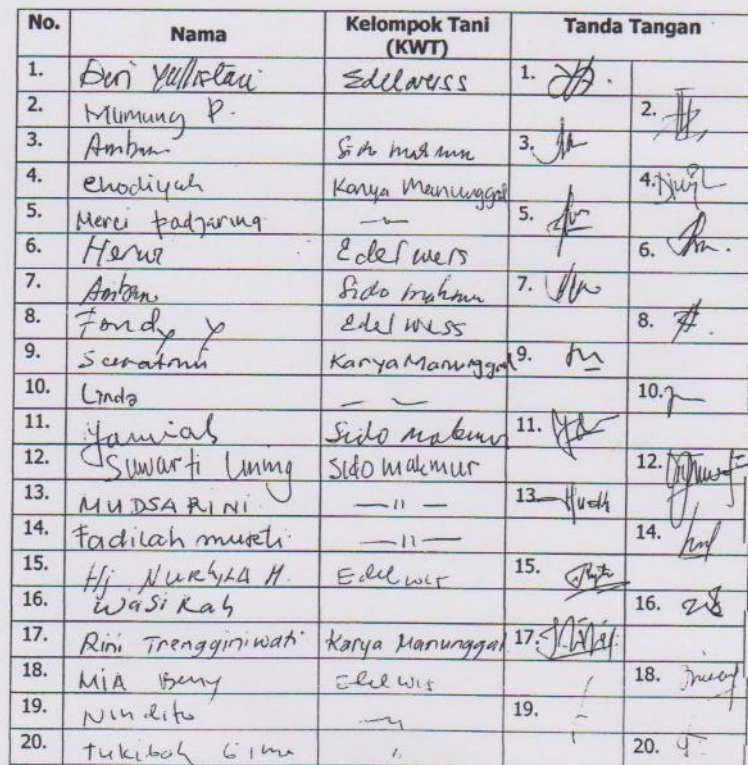 No. Nama Kelompok Tani (KWT) Tanda Tangan
1. Deri Yulistari Edelweiss 1.
2. Mumung P. 2.
3. Ambar Sido makmur 3.
4. Chodiyah Karya Manunggal 4.
5. Merci Padjaring 5.
6. Herur Edelweis 6.
7. Sido makmur 7.
8. Fondy Y Edelweiss 8.
9. Karya Manunggal 9.
10. Linda 10.
11. Sido makmur 11.
12. Suwarti Uning Sido makmur 12.
13. MUDSARINI —11— 13.
14. Fadilah —11— 14.
15. Hj. M. Edelwis 15.
16. Wasikah 16.
17. Rini Trengginiwati Karya Manunggal 17.
18. MIA Edelwis 18.
19. Nindito 19.
20. Tukibah 20.